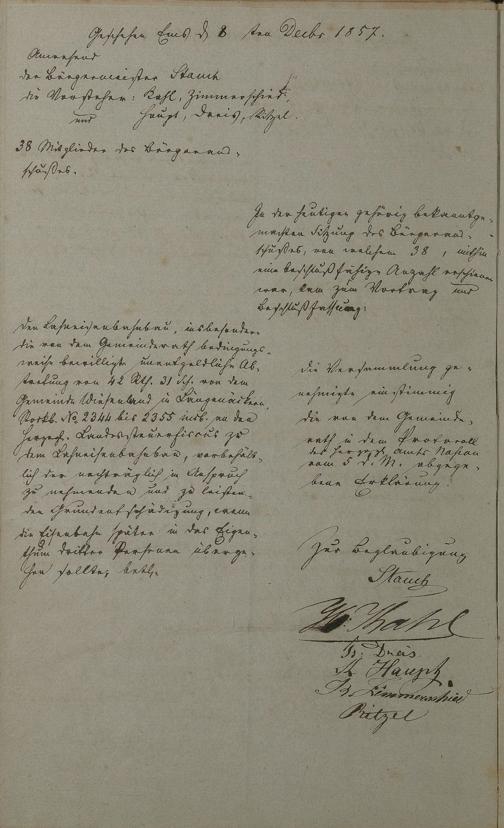 Geschehen Ems d 8 ten Decbr 1857.
Anwesend
der Bürgermeister Stauch
die Vorsteher: Kahl, Zimmerschied,
und Haupt, Dreis, Pitzel.
38 Mitglieder des Bürgeraus-
schußes.
In der heutigen gehörig bekanntge-
machten Sitzung des Bürgeraus-
schußes, von welchem 38, mithin
eine beschlußfähige Anzahl erschienen
war, kam zum Vortrag und
Beschlußfassung:
Den Lahneisenbahnbau, insbesondere
die von dem Gemeinderath bedingungs-
weise bewilligte unentgeldliche Ab-
tretung von 42 Rth. 31 Sch. von dem
Gemeinde Wiesenland in
Stockb. No 2344 bis 2355 incl. an den
Herzogl. Landessteuerfiscus zu
dem Lahneisenbahnbau, vorbehält-
lich der nachträglich in Anspruch
zu nehmenden und zu leisten-
den Grundentschädigung, wenn
die Eisenbahn später in das Eigen-
thum dritter Personen überge-
hen sollte, betr.
die Versammlung ge-
nehmigte einstimmig
die von dem Gemeinde-
rath in dem Protocoll
des Herzogl. Amts Nassau
vom 5 d. M. abgege-
bene Erklärung.
Zur Beglaubigung
Stauch
Kahl
Dreis
Haupt
Zimmerschied
Pitzel